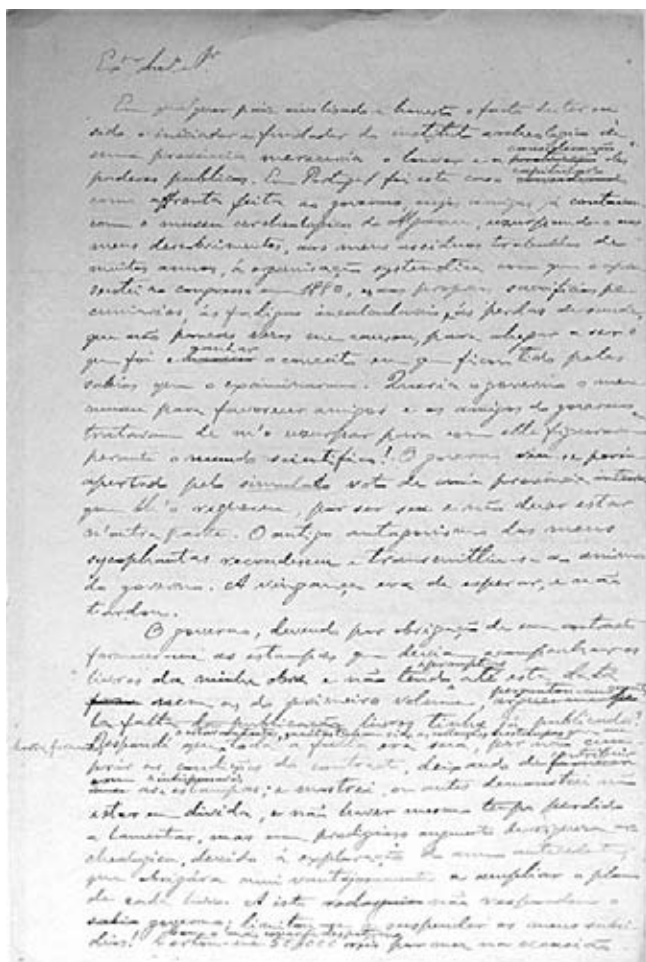 Ex.mo Am.o e Sr.
Em qualquer paiz civilisado e honesto o facto de ter eu
sido o iniciador e fundador do instituto archeologico de
uma provincia mereceria o louvor e a consideração dos
poderes publicos. Em Portugal foi este caso capitulado
como affronta feita ao governo, cujos amigos já contavam
com o museu archeologico do Algarve, usurpando-o aos
meus descobrimentos, aos meus assiduos trabalhos de
muitos annos, á organisação systematica com que o apre
sentei no congresso em 1880, e aos proprios sacrificios pe
cuniarios, ás fadigas incalculaveis, ás perdas de saude,
que não poucas vezes me causou, para chegar a ser o
que foi e ganhar o conceito em que ficou tido pelos
sabios que o examinaram. Queria o governo o meu
museu para favorecer amigos e os amigos do governo
trataram de m'o usurpar para com elle figurarem
perante o mundo scientifico! O governo viu-se porém
apertado pelo simulado voto de uma provincia inteira
que lh'o requereu, por ser seu e não dever estar
n'outra parte. O antigo antagonismo dos meus
sycophantas recrudesceu e transmittiu-se ao animo
do governo. A vingança era de esperar, e não
tardou.
O governo, devendo por obrigação de seu contracto
fornecer-me as estampas que deviam acompanhar os
livros da minha obra e não tendo até esta data
nem as do primeiro volume,
la falta da publicação livros tinha já publicados?
Respondi que toda a falta era sua, por não cum
prir as condições do contracto, deixando de
as estampas; e mostrei, ou antes demonstrei não
estar em divida, e não haver mesmo tempo perdido
a lamentar, mas um prodigioso augmento de riqueza ar
cheologica, devido á exploração do anno antecedente,
que obrigára mui vantajosamente a ampliar o plano
de cada livro. A isto não respondeu o
sabio governo; limitou-se a suspender os meus subsi
dios! 50,000 réis por mez na occasião